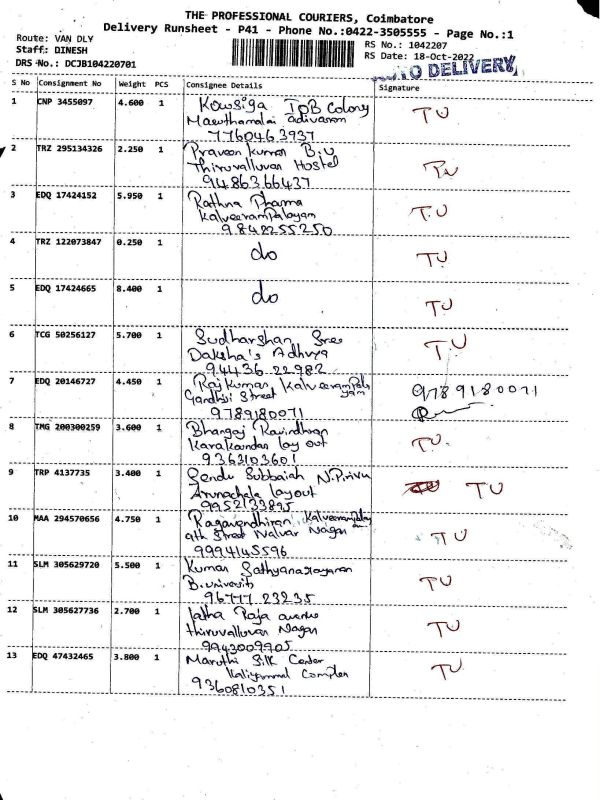 THE PROFESSIONAL COURIERS, Coimbatore
Delivery Runsheet - P41 - Phone No.:0422-3505555 - Page No.:1
Route: VAN DLY
Staff: DINESH
DRS No.: DCJB104220701
RS No.: 1042207
RS Date: 18-Oct-2022
AUTO DELIVERY
S No Consignment No Weight PCS Consignee Details Signature
1 CNP 3455097 4.600 1 Kowsiga IOB Colony TU
Maruthamalai adivaram
7760463937
2 TRZ 295134326 2.250 1 Praveen kumar B.U
Thiruvalluvar Hostel
9486366437
3 EDQ 17424152 5.950 1 Rathna Pharma T.U
Kalveerampalayam
9842255250
4 TRZ 122073847 0.250 1 do TU
5 EDQ 17424665 8.400 1 do TU
6 TCG 50256127 5.700 1 Sudharshan Sree T.U
Daksha's Adhvya
94436 22982
7 EDQ 20146727 4.450 1 Rajkumar Kalveerampalayam 9789180071
Gandhiji Street
9789180071
8 TMG 200300259 3.600 1 Ravindhran TU.
layout
9363103601
9 TRP 4137735 3.400 1 Sendu Subbaiah N.Pirivu TU
Arunachala layout
9952133895
10 MAA 294570656 4.750 1 Ragavendhiran TU
9th Street Nalvar Nagar
9994145596
11 SLM 305629720 5.500 1 Kumar Sathyanarayanan TU
96777 23235
12 SLM 305627736 2.700 1 latha Raja avenue TU
thiruvalluvar Nagar
9943009705
13 EDQ 47432465 3.800 1 Maruthi Silk Center TU
Complex
9360810351